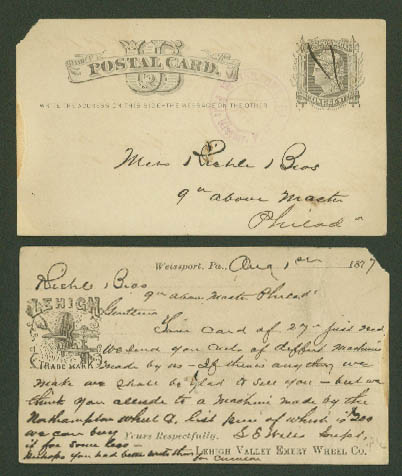 U S
POSTAL CARD.
WRITE THE ADDRESS ON THIS SIDE - THE MESSAGE ON THE OTHER
Mess Riehle & Bros
9th above Master
Philada
Weissport, Pa., Aug 1st 1877
Riehle Bros
9th above Master Philada
LEHIGH
TRADE MARK
Gentlemen
Your card of 27 - just recd
We send you cuts of different machines
made by us - If theres anything we
make we shall be glad to sell you - but we
think you allude to a machine made by the
Northampton Wheel Co, list price of which is $200
we can buy
it for some less -
Yours Respectfully,
Supt.
LEHIGH VALLEY EMERY WHEEL CO.
Perhaps you had better write them for